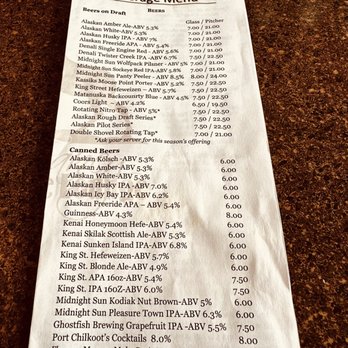 Menu
Beers on Draft BEERS
Glass / Pitcher
Alaskan Amber Ale-ABV 5.3% 7.00 / 21.00
Alaskan White-ABV 5.3% 7.00 / 21.00
Alaskan Husky IPA -ABV 7% 7.00 / 21.00
Alaskan Freeride APA - ABV 5.4% 7.00 / 21.00
Denali Single Engine Red - ABV 5.6% 7.00 / 21.00
Denali Twister Creek IPA - ABV 6.7% 7.50 / 22.50
Midnight Sun Wolfpack Pilsner - ABV 5% 7.00 / 21.00
Midnight Sun Sockeye Red IPA -ABV 5.8% 7.00 / 21.00
Midnight Sun Panty Peeler - ABV 8.5% 8.00 / 24.00
Kassiks Moose Point Porter - ABV 5.2% 7.50 / 22.50
King Street Hefeweizen - ABV 5.7% 7.50 / 22.50
Matanuska Backcountry Blue - ABV 4.5% 7.50 / 22.50
Coors Light – ABV 4.2% 6.50 / 19.50
Rotating Nitro Tap - ABV 5%* 7.50 / 22.50
Alaskan Rough Draft Series* 7.50 / 22.50
Alaskan Pilot Series* 7.50 / 22.50
Double Shovel Rotating Tap* 7.00 / 21.00
*Ask your server for this season's offering
Canned Beers
Alaskan Kölsch -ABV 5.3% 6.00
Alaskan Amber-ABV 5.3% 6.00
Alaskan White-ABV 5.3% 6.00
Alaskan Husky IPA -ABV 7.0% 6.00
Alaskan Icy Bay IPA-ABV 6.2% 6.00
Alaskan Freeride APA – ABV 5.4% 6.00
Guinness-ABV 4.3% 8.00
Kenai Honeymoon Hefe-ABV 5.4% 6.00
Kenai Skilak Scottish Ale-ABV 5.3% 6.00
Kenai Sunken Island IPA-ABV 6.8% 6.00
King St. Hefeweizen-ABV 5.7% 6.00
King St. Blonde Ale-ABV 4.9% 6.00
King St. APA 16oz-ABV 5.4% 7.50
King St. IPA 16OZ-ABV 6.0% 7.50
Midnight Sun Kodiak Nut Brown-ABV 5% 6.00
Midnight Sun Pleasure Town IPA-ABV 6.3% 6.00
Ghostfish Brewing Grapefruit IPA -ABV 5.5% 7.50
Port Chilkoot's Cocktails 8.0% 8.00